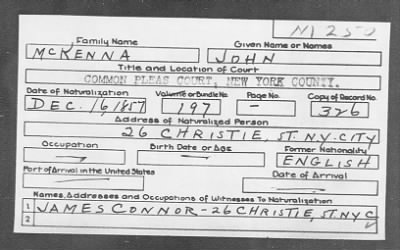 N1250
Family Name Given Name or Names
MCKENNA JOHN
Title and Location of Court
COMMON PLEAS COURT, NEW YORK COUNTY.
Date of Naturalization Volume or Bundle No. Page No. Copy of Record No.
DEC. 16, 1857 197 — 326
Address of Naturalized Person
26 CHRISTIE, ST. N.Y. CITY
Occupation Birth Date or Age Former Nationality
— — ENGLISH
Port of Arrival in the United States Date of Arrival
— —
Names, Addresses and Occupations of Witnesses To Naturalization
1 JAMES CONNOR - 26 CHRISTIE, ST. N.Y.C
2